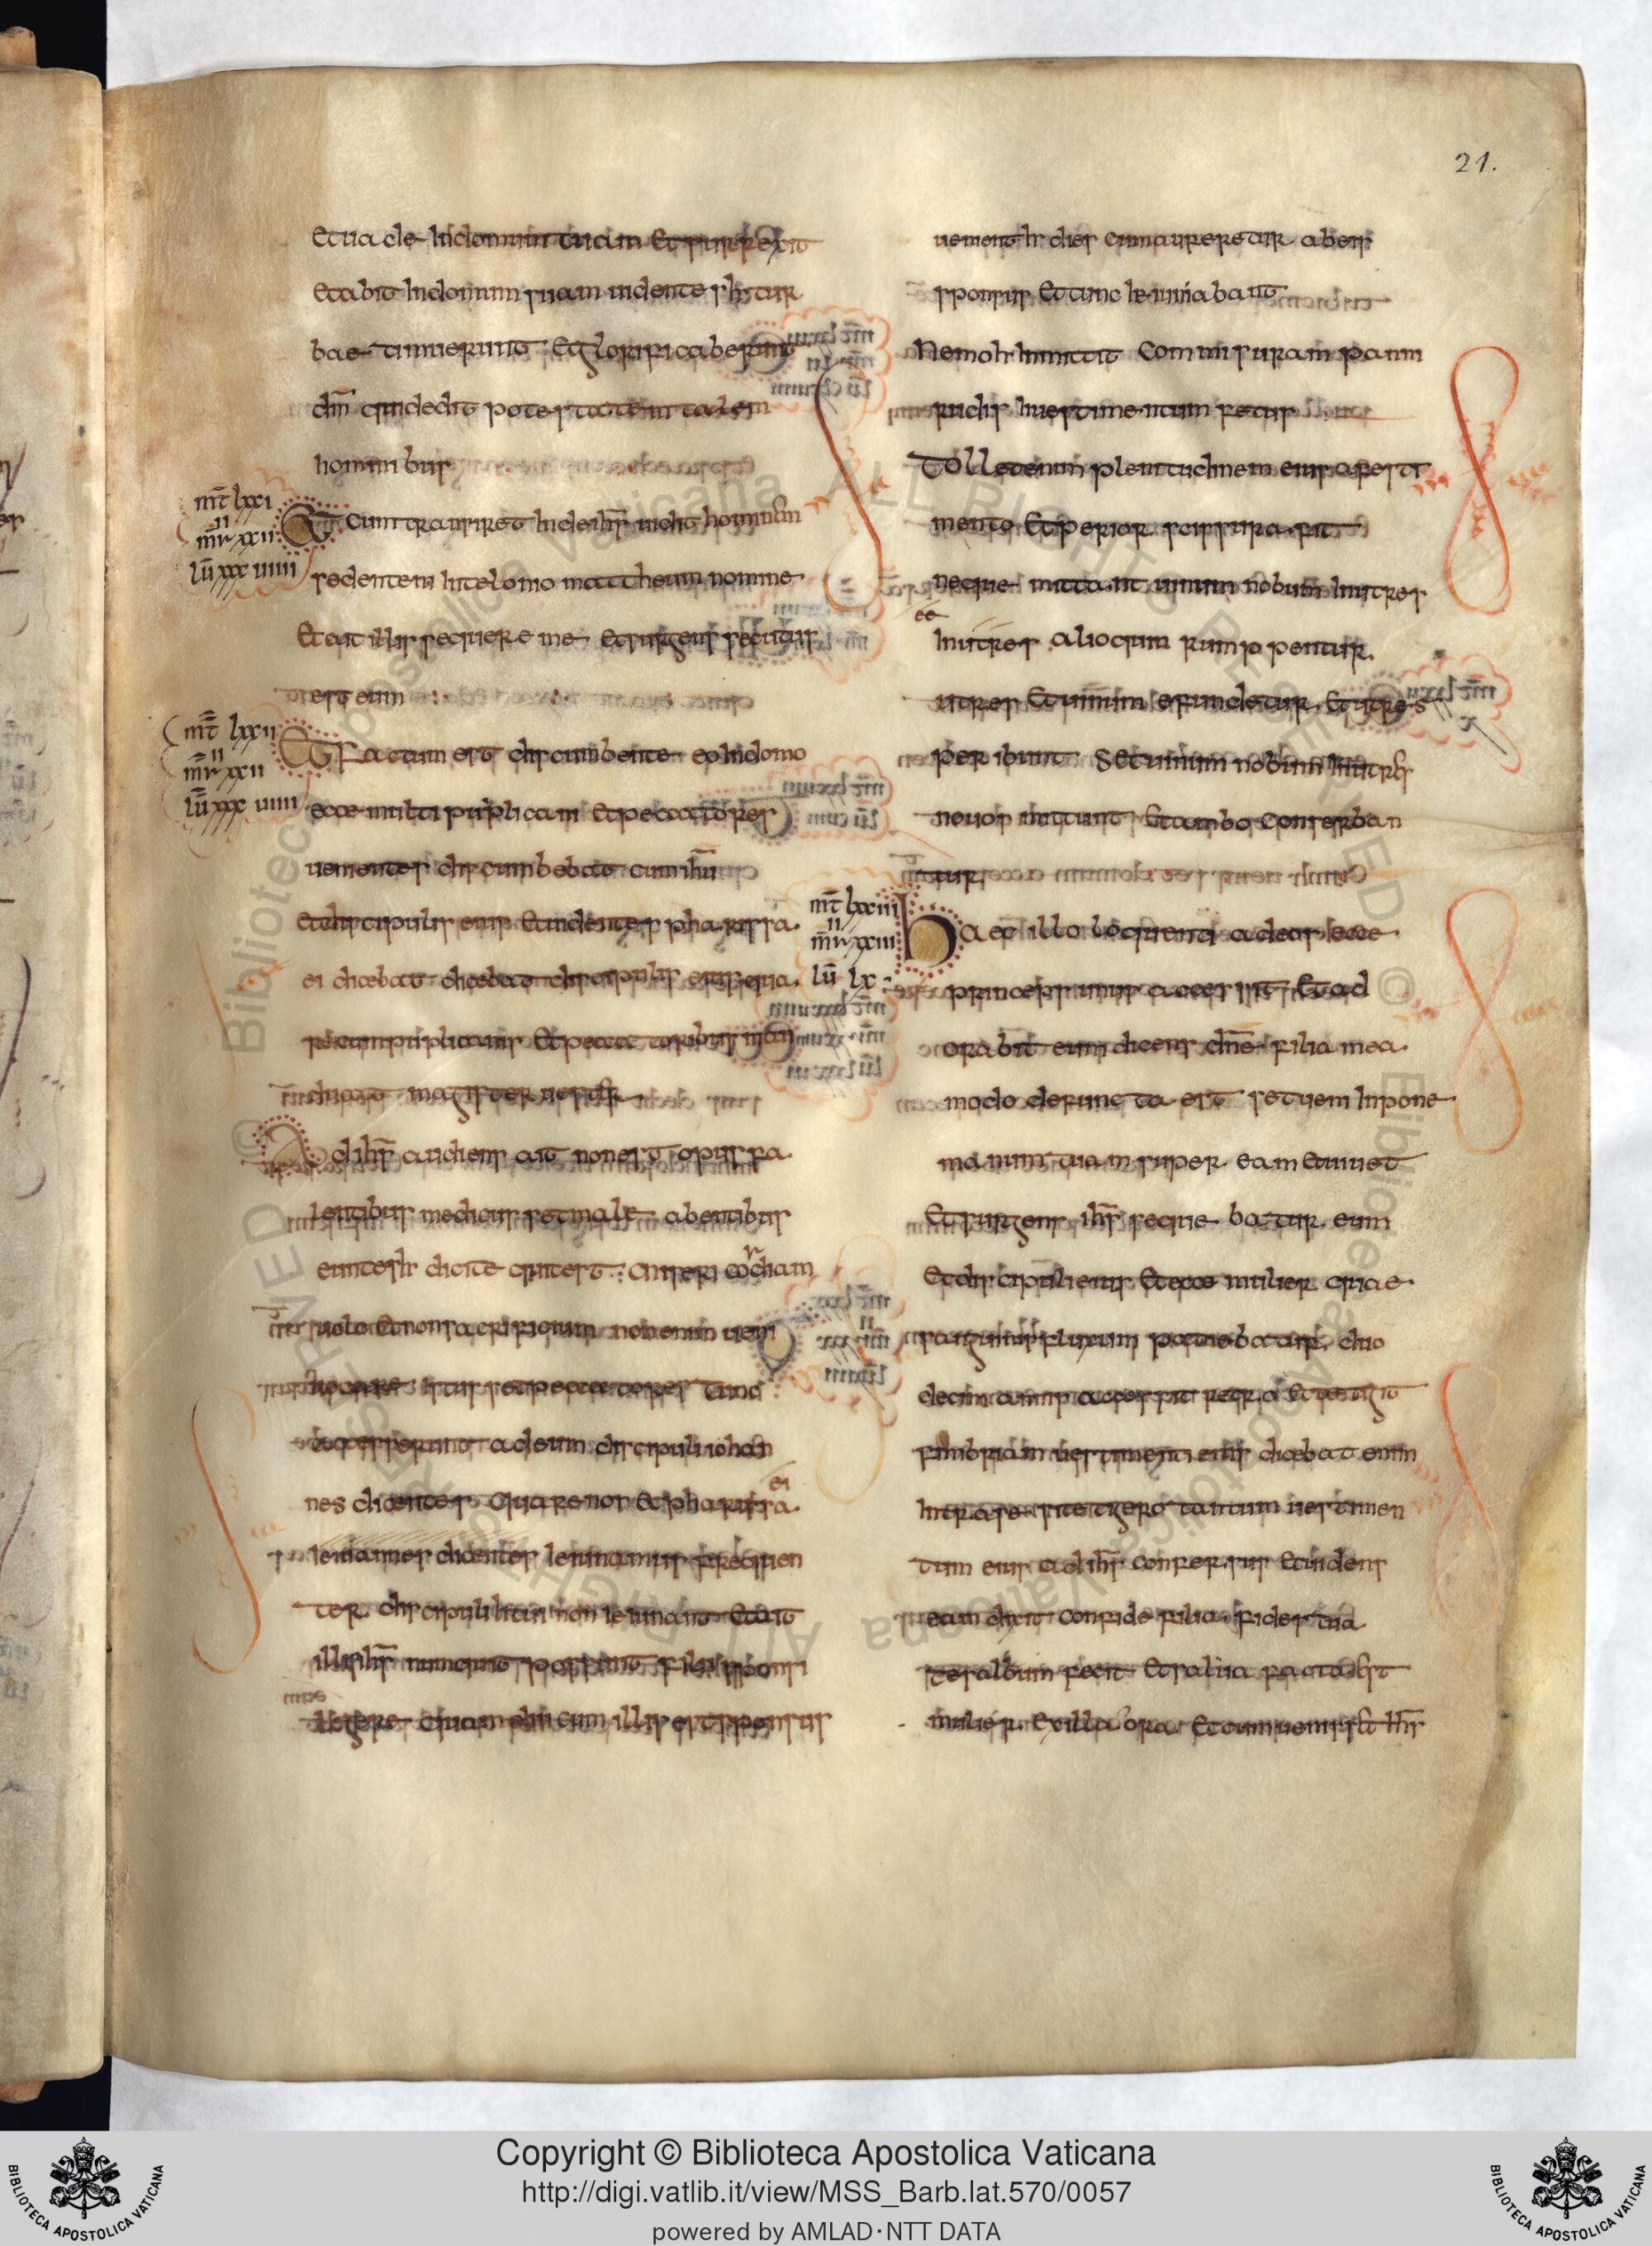 21.
et uade in domum tuam et surrexit
et abiit in domum suam uidentes h̄ tur
bae timuerunt et glorificaberunt
dm̄ qui dedit potestatem talem
hominibus
mt̄ lxxi
ii
mr̄ xxi
lū xxxuiiii
Et cum transiret inde ihs̄ uidit hominem
sedentem in teloneo mattheum nomine
et ait illis sequere me et surgens secutus
est eum
mt̄ lxxii
ii
mr̄ xxii
lū xxxuiiii
Et factum est discumbente eo in domo
ecce multi puplicani et peccatores
uenientes discumbebant cum ihu̅
et discipulis eius et uidentes pharissa
ei dicebat dicebant discipulis eius qua
re cum puplicanis et peccatoribus man
ducat magister uester
Ad ihs̄ audiens ait non est opus sa
lentibus medicus set male abentibus
euntes h̄ dicite quit est misericordiam
uolo et non sacrificium non enim ueni
uocare iustus set peccatores tunc
accesserunt ad eum discipuli iohan
nes dicentes quare nos et pharissa
ei
ieiunamus frequen
ter discipuli h̄ tui non ieiunant et ait
illis ihs̄ numquit possunt filii sponsi
lugere quamdiu cum illis est sponsus
uenient h̄ dies cum auferetur ab eis
sponsus et tunc ieiunabunt
Nemo h̄ inmittit commisuram panni
rudis in uestimentum uetus
Tollet enim plenitudinem eius a uesti
mento et peior scissura fit
neque mittant uinum nobum in utres
ueteres alioquin rumppentur
utres et uinum efundetur et utres
peribunt set uinum nobum in utres
nouos mittunt et ambo conserban
tur
mt̄ lxxiii
ii
mr̄ xxiii
lū lx
haec illo loquente ad eos ecce
princeps unus accessit et ad
orabit eum dicens dn̄e filia mea
modo defuncta est set ueni inpone
manum tuam super eam et uiuet
et surgens ihs̄ sequebatur eum
et discipuli eius et ecce mulier quae
sanguinis fluxum patiebatur duo
decim annis accessit retro et tetigit
fimbriam uestimenti eius dicebat enim
intra se si tetigero tantum uestimen
tum eius ad ihs̄ conuersus et uidens
eam dixit confide filia fides tua
te salbam fecit et salua facta est
mulier ex illa ora et cum uenisset ihs̄
Copyright © Biblioteca Apostolica Vaticana
http://digi.vatlib.it/view/MSS_Barb.lat.570/0057
powered by AMLAD·NTT DATA
BIBLIOTECA APOSTOLICA VATICANA
BIBLIOTECA APOSTOLICA VATICANA